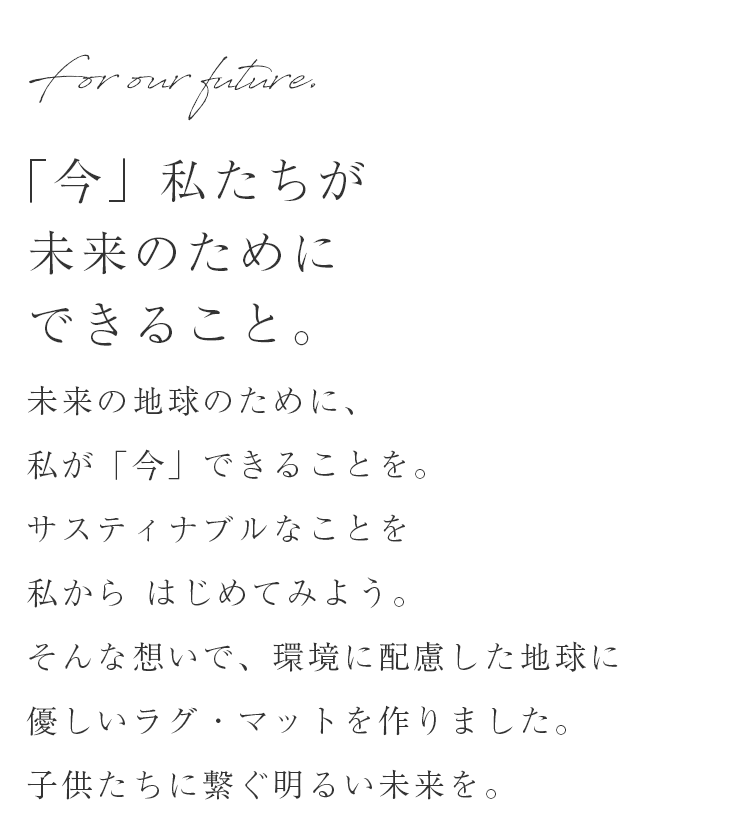 for our future.
「今」私たちが
未来のために
できること。
未来の地球のために、
私が「今」できることを。
サスティナブルなことを
私から はじめてみよう。
そんな想いで、環境に配慮した地球に
優しいラグ・マットを作りました。
子供たちに繋ぐ明るい未来を。